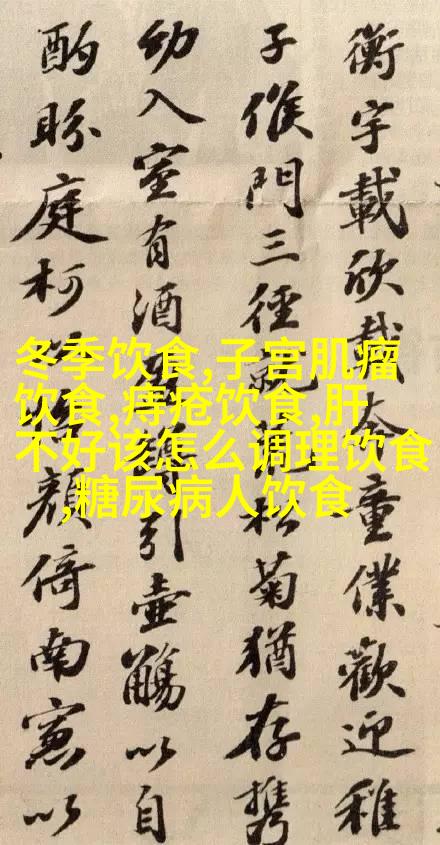 衡宇載欣載奔童僕歡迎稚
子候門三徑就荒松菊猶存携
幼入室有酒盈樽引壺觴以自
酌眄庭柯以怡顔倚南窻以
冬季饮食,子宫肌瘤
饮食,痔疮饮食,肝
不好该怎么调理饮食
,糖尿病人饮食